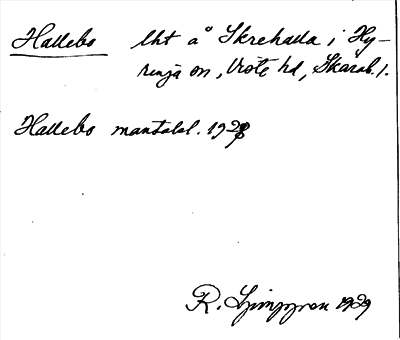 Hallebo lht å Skrehalla i Hy-
ringa sn, Viste hd, Skarab. l.
Hallebo mantalsl. 1928
R. Ljunggren 1929